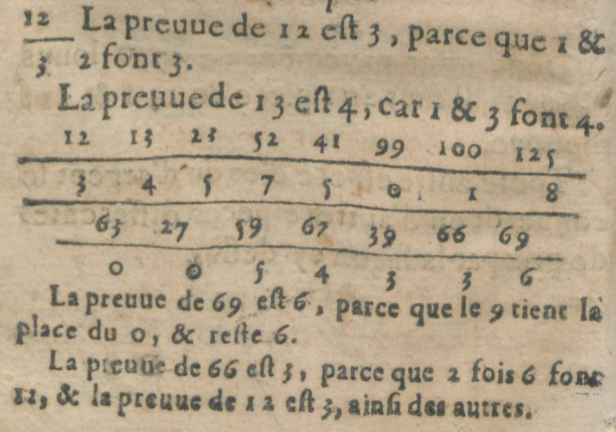 12 La preuue de 12 est 3, parce que 1 &
3 2 font 3.
La preuue de 13 est 4, car 1 & 3 font 4.
12 13 23 52 41 99 100 125
3 4 5 7 5 0 1 8
63 27 59 67 39 66 69
0 0 5 4 3 3 6
La preuue de 69 est 6, parce que le 9 tient la
place du 0, & reste 6.
La preuue de 66 est 3, parce que 2 fois 6 font
12, & la preuue de 12 est 3, ainsi des autres.